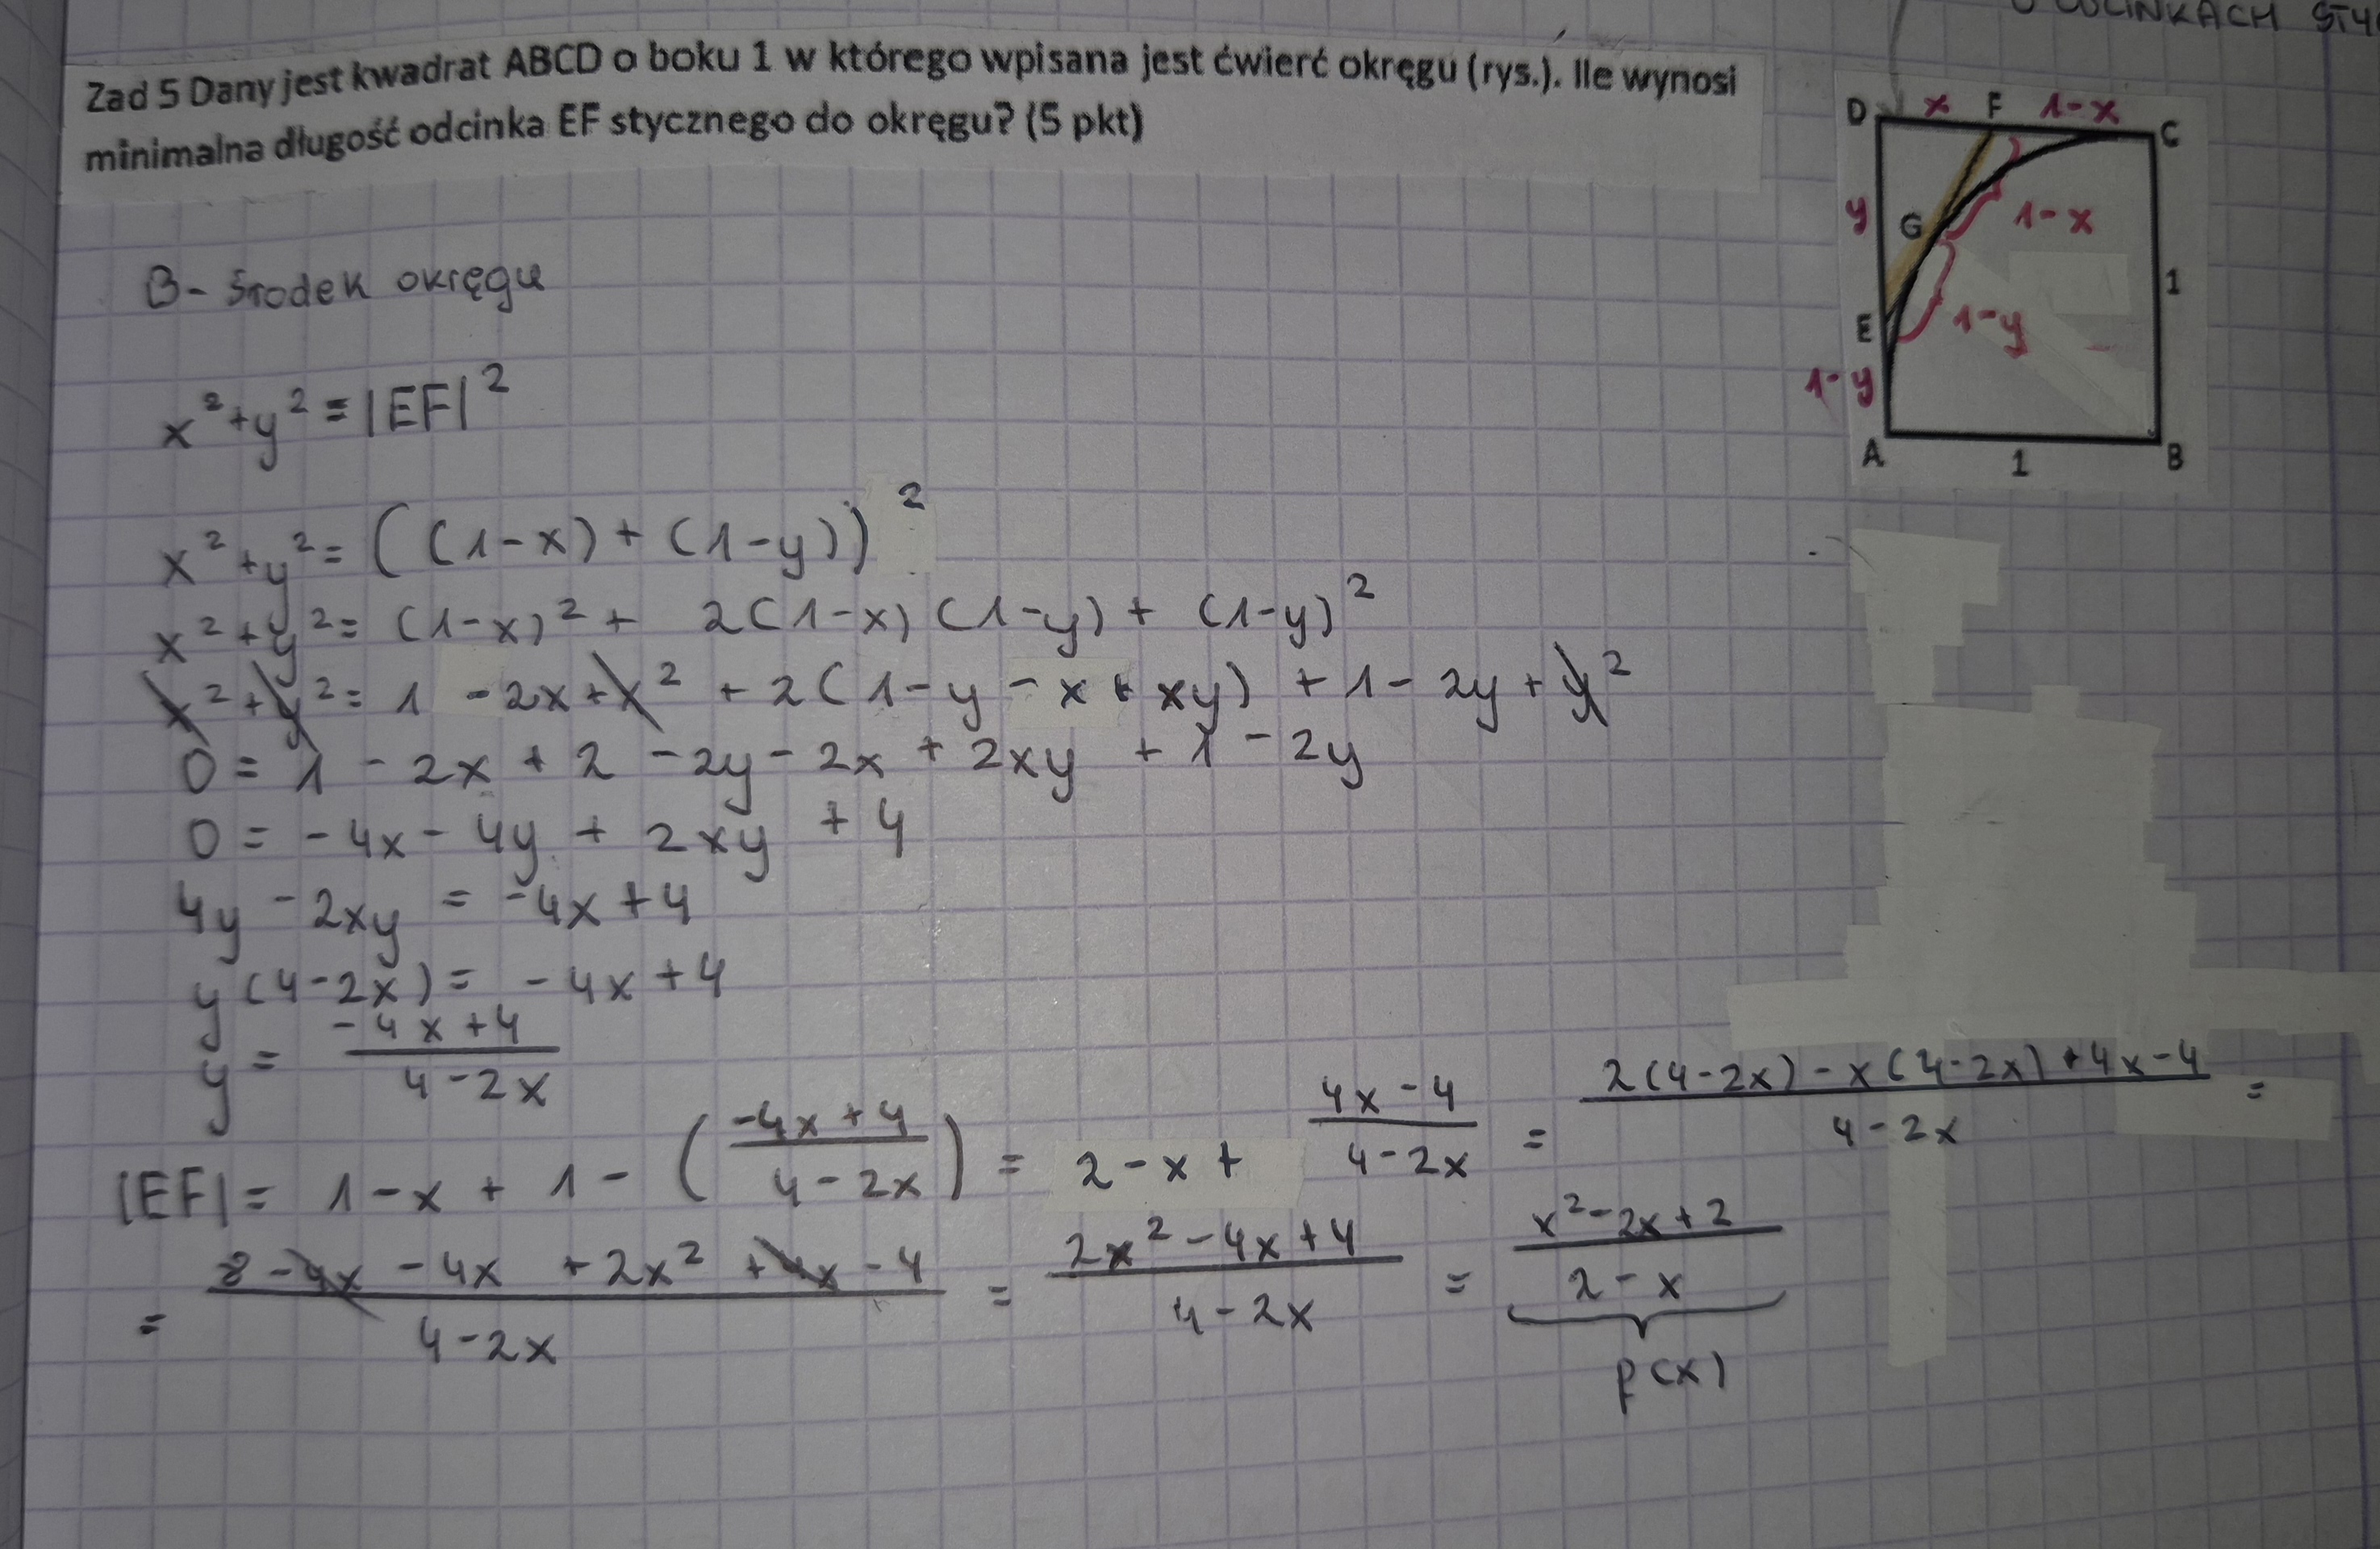 O ODCINKACH
Zad 5 Dany jest kwadrat ABCD o boku 1 w którego wpisana jest ćwierć okręgu (rys.). Ile wynosi
minimalna długość odcinka EF stycznego do okręgu? (5 pkt)
D x F 1-x C
y G 1-x
1
E 1-y
1-y
A 1 B
B - środek okręgu
x² + y² = |EF|²
x² + y² = ((1-x) + (1-y))²
x² + y² = (1-x)² + 2(1-x)(1-y) + (1-y)²
x² + y² = 1 - 2x + x² + 2(1 - y - x + xy) + 1 - 2y + y²
0 = 1 - 2x + 2 - 2y - 2x + 2xy + 1 - 2y
0 = -4x - 4y + 2xy + 4
4y - 2xy = -4x + 4
y(4-2x) = -4x + 4
y = (-4x+4)/(4-2x)
|EF| = 1 - x + 1 - ((-4x+4)/(4-2x)) = 2 - x + (4x-4)/(4-2x) = (2(4-2x) - x(4-2x) + 4x - 4)/(4-2x) =
= (8 - 4x - 4x + 2x² + 4x - 4)/(4-2x) = (2x² - 4x + 4)/(4-2x) = (x² - 2x + 2)/(2-x)
f(x)